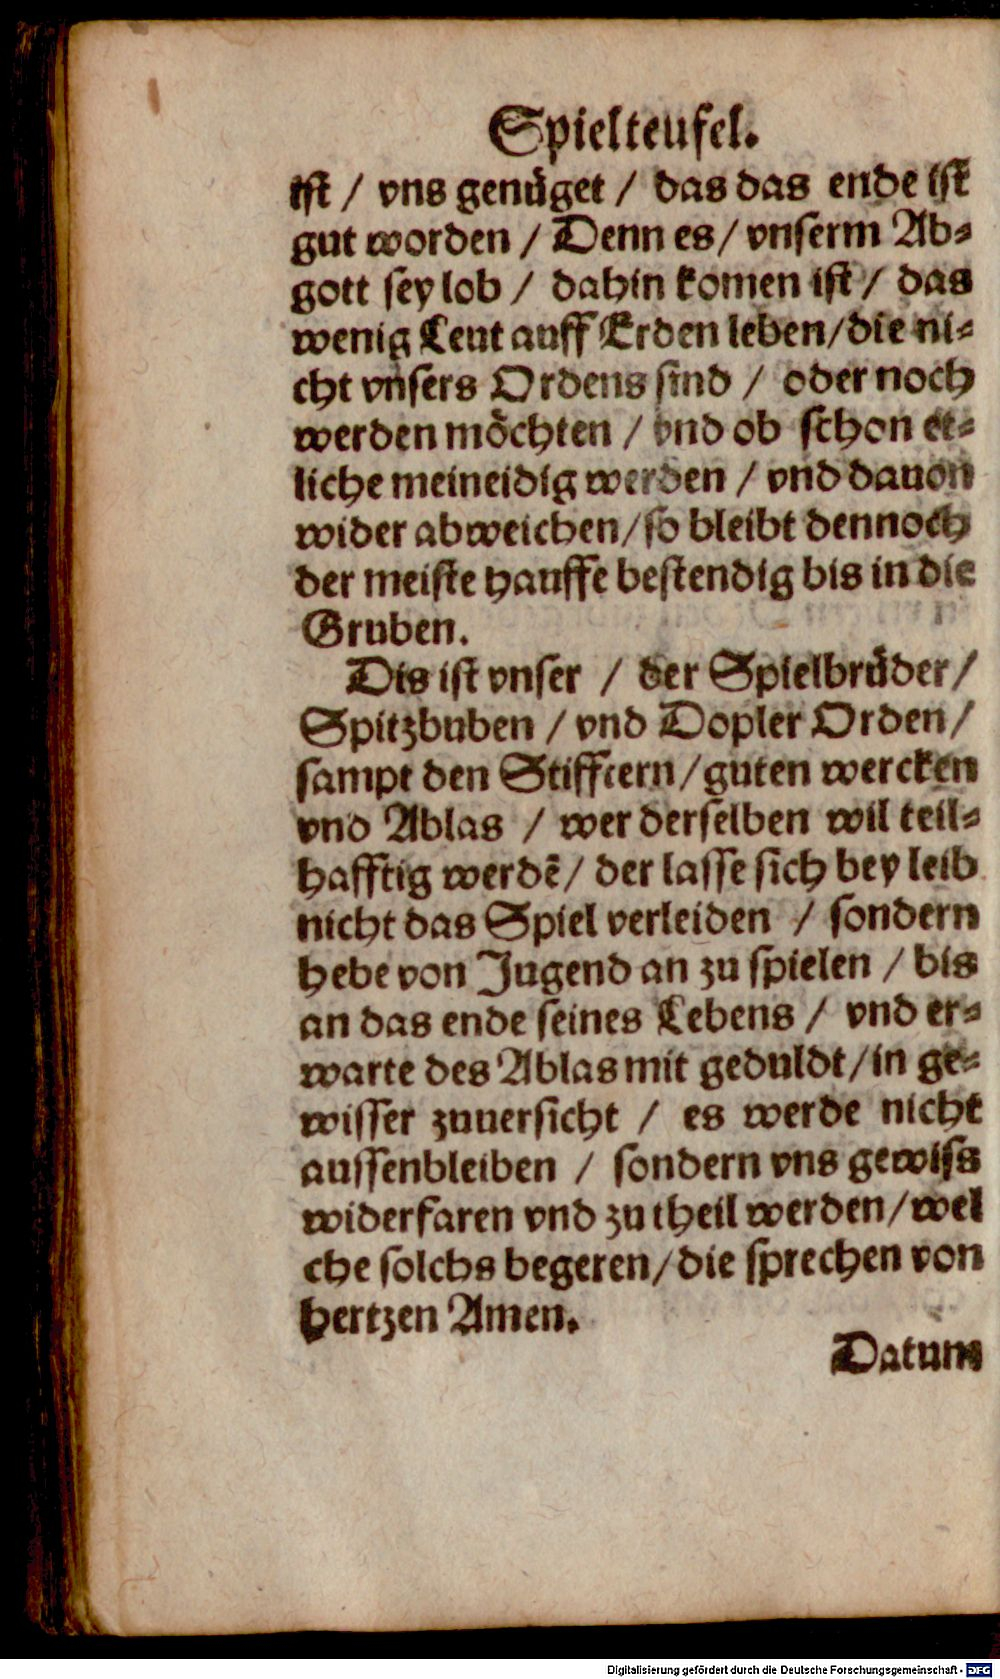 Spielteufel.
ist / vns genüget / das das ende ist
gut worden / Denn es / vnserm Ab⸗
gott sey lob / dahin komen ist / das
wenig Leut auff Erden leben / die ni⸗
cht vnsers Ordens sind / oder noch
werden möchten / vnd ob schon et⸗
liche meineidig werden / vnd dauon
wider abweichen / so bleibt dennoch
der meiste hauffe bestendig bis in die
Gruben.
Dis ist vnser / der Spielbrüder /
Spitzbuben / vnd Dopler Orden /
sampt den Stifftern / guten wercken
vnd Ablas / wer derselben wil teil⸗
hafftig werdẽ / der lasse sich bey leib
nicht das Spiel verleiden / sondern
hebe von Jugend an zu spielen / bis
an das ende seines Lebens / vnd er⸗
warte des Ablas mit geduldt / in ge⸗
wisser zuuersicht / es werde nicht
aussenbleiben / sondern vns gewiss
widerfaren vnd zu theil werden / wel
che solchs begeren / die sprechen von
hertzen Amen.
Datum
Digitalisierung gefördert durch die Deutsche Forschungsgemeinschaft - DFG